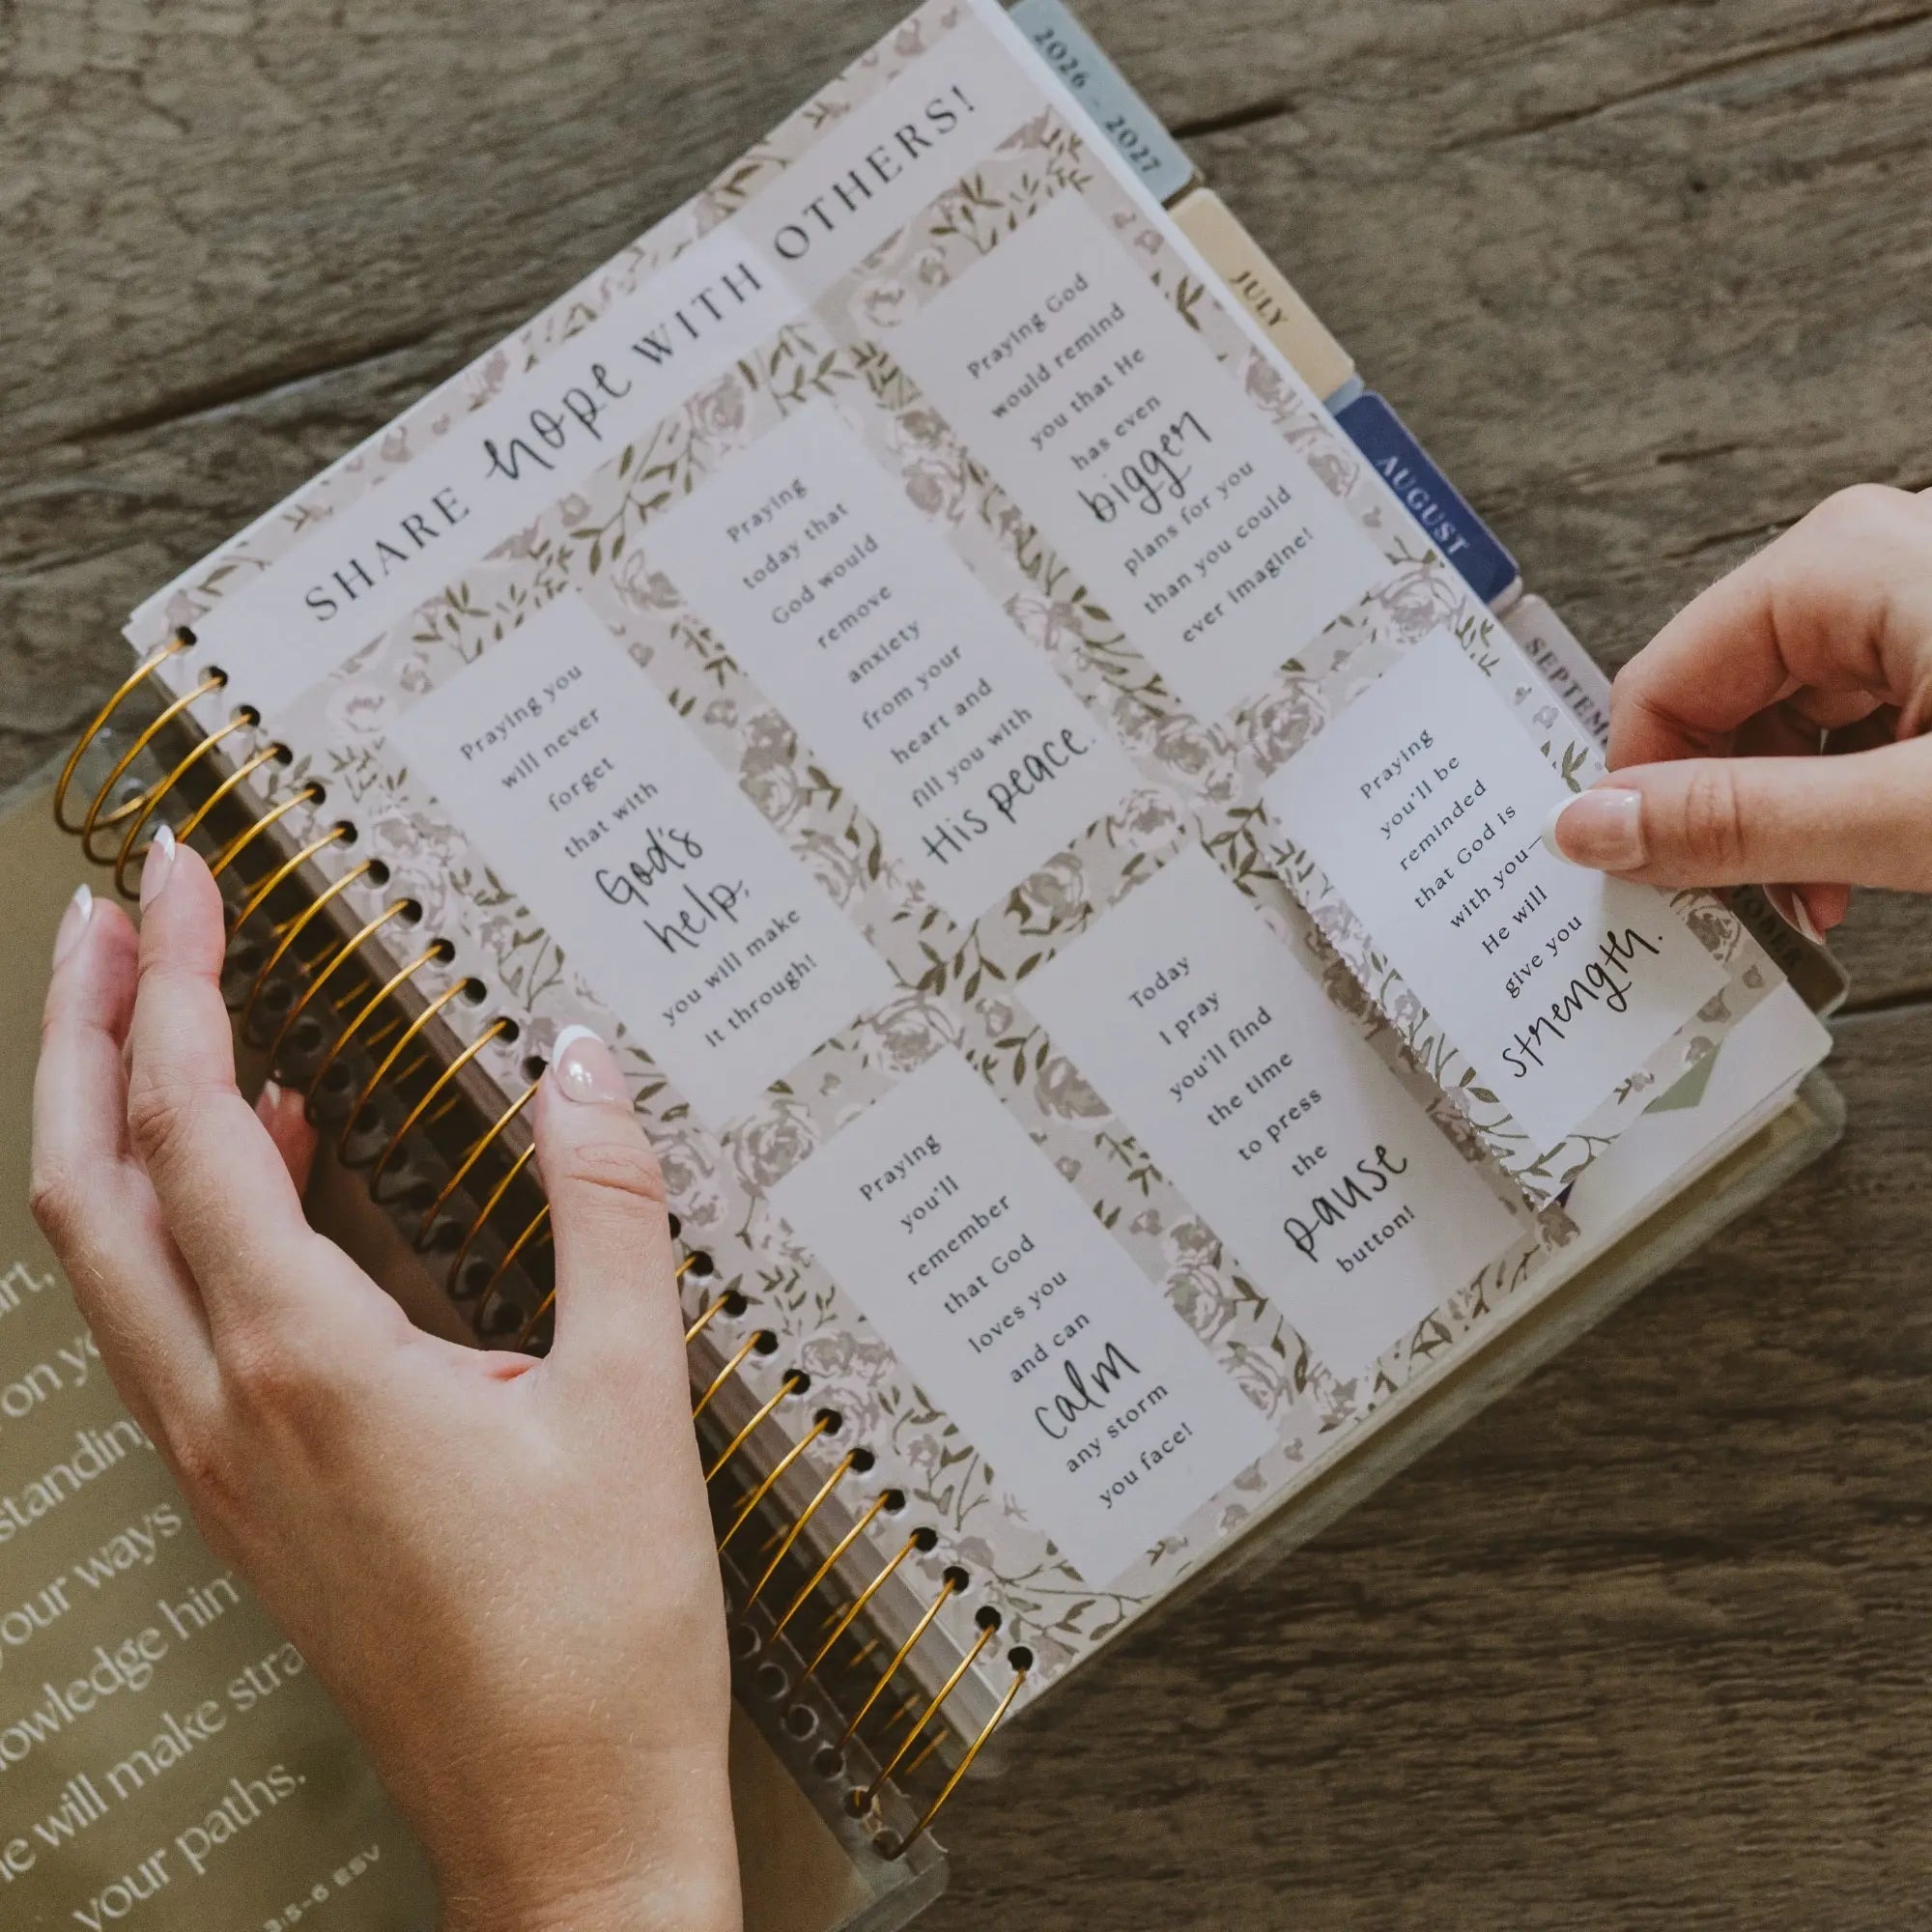 SHARE hope WITH OTHERS!
Praying you
will never
forget
that with
God's
help,
you will make
it through!
Praying
today that
God would
remove
anxiety
from your
heart and
fill you with
His peace.
Praying God
would remind
you that He
has even
bigger
plans for you
than you could
ever imagine!
Praying
you'll
remember
that God
loves you
and can
calm
any storm
you face!
Today
I pray
you'll find
the time
to press
the
pause
button!
Praying
you'll be
reminded
that God is
with you—
He will
give you
strength.
2026 - 2027
JULY
AUGUST
SEPTEM
on
standing
your ways
him
will make
your paths.
3:5-6 ESV